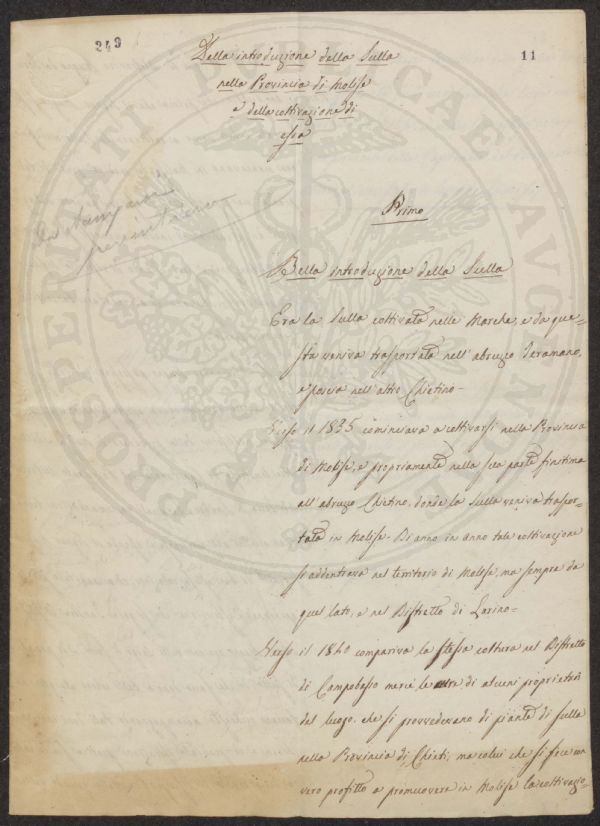 249
11
Della introduzione della Sulla
nella Provincia di Molise
e della coltivazione di
essa
Primo
Della introduzione della Sulla
Era la Sulla coltivata nelle Marche, e da que=
sta veniva trasportata nell'abruzzo Teramano,
e poscia nell'altro Chietino-
Verso il 1835 cominciava a coltivarsi nella Provincia
di Molise, e propriamente nella sua parte finitima
all'abruzzo Chietino, donde la Sulla veniva traspor=
tata in Molise- Di anno in anno tale coltivazione
si addentrava nel territorio di Molise, ma sempre da
quel lato, e nel Distretto di Larino=
Verso il 1840 compariva la stessa coltura nel Distretto
di Campobasso mercè le cure di alcuni proprietarj
del luogo, che si provvedevano di piante di Sulla
nella Provincia di Chieti; ma colui che si fece con
vero profitto a promuovere in Molise la coltivazio-
PROSPERITATI PUBLICAE AUG